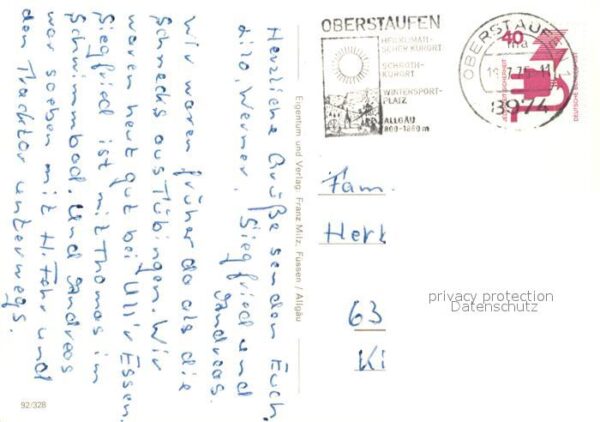 Herzliche Grüße senden Euch
Dizo, Werner, Siegfried und
Andreas.
Wir waren früher da als die
Schnecks aus Tübingen. Wir
waren heut gut bei Ulli's Essen.
Siegfried ist mit Thomas im
Schwimmbad. Und Andreas
war soeben mit H. Fehr und
den Tracktor unterwegs.
Eigentum und Verlag: Franz Milz, Füssen / Allgäu
92/328
OBERSTAUFEN
HEILKLIMATI-
SCHER KURORT
SCHROTH-
KURORT
WINTERSPORT-
PLATZ
ALLGÄU
800-1860 m
OBERSTAUFEN 1
8974
40
DEUTSCHE BUNDESPOST
Fam.
Herk
63
Ki
privacy protection
Datenschutz